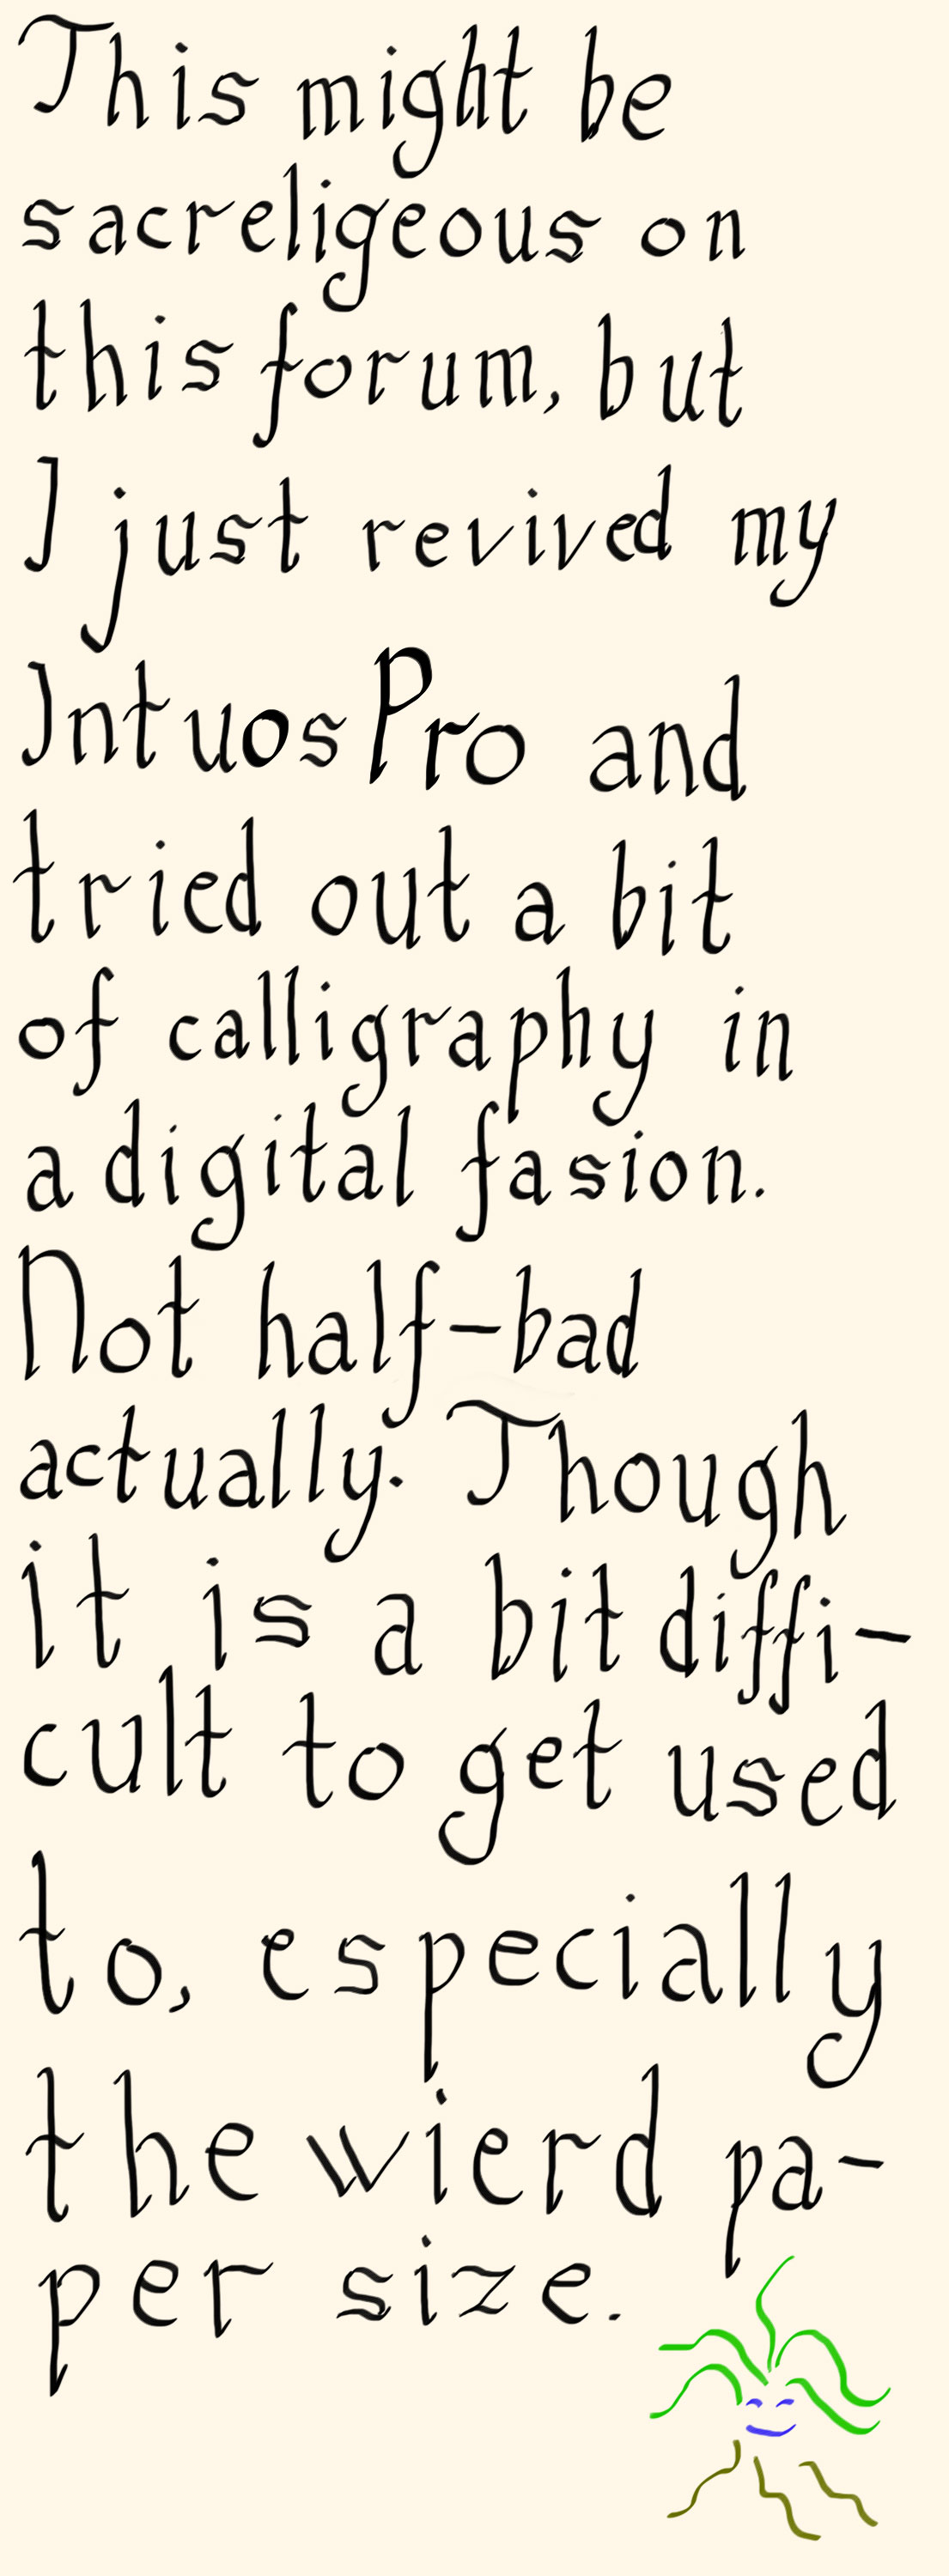 This might be
sacreligeous on
this forum, but
I just revived my
Intuos Pro and
tried out a bit
of calligraphy in
a digital fasion.
Not half-bad
actually. Though
it is a bit diffi-
cult to get used
to, especially
the wierd pa-
per size.